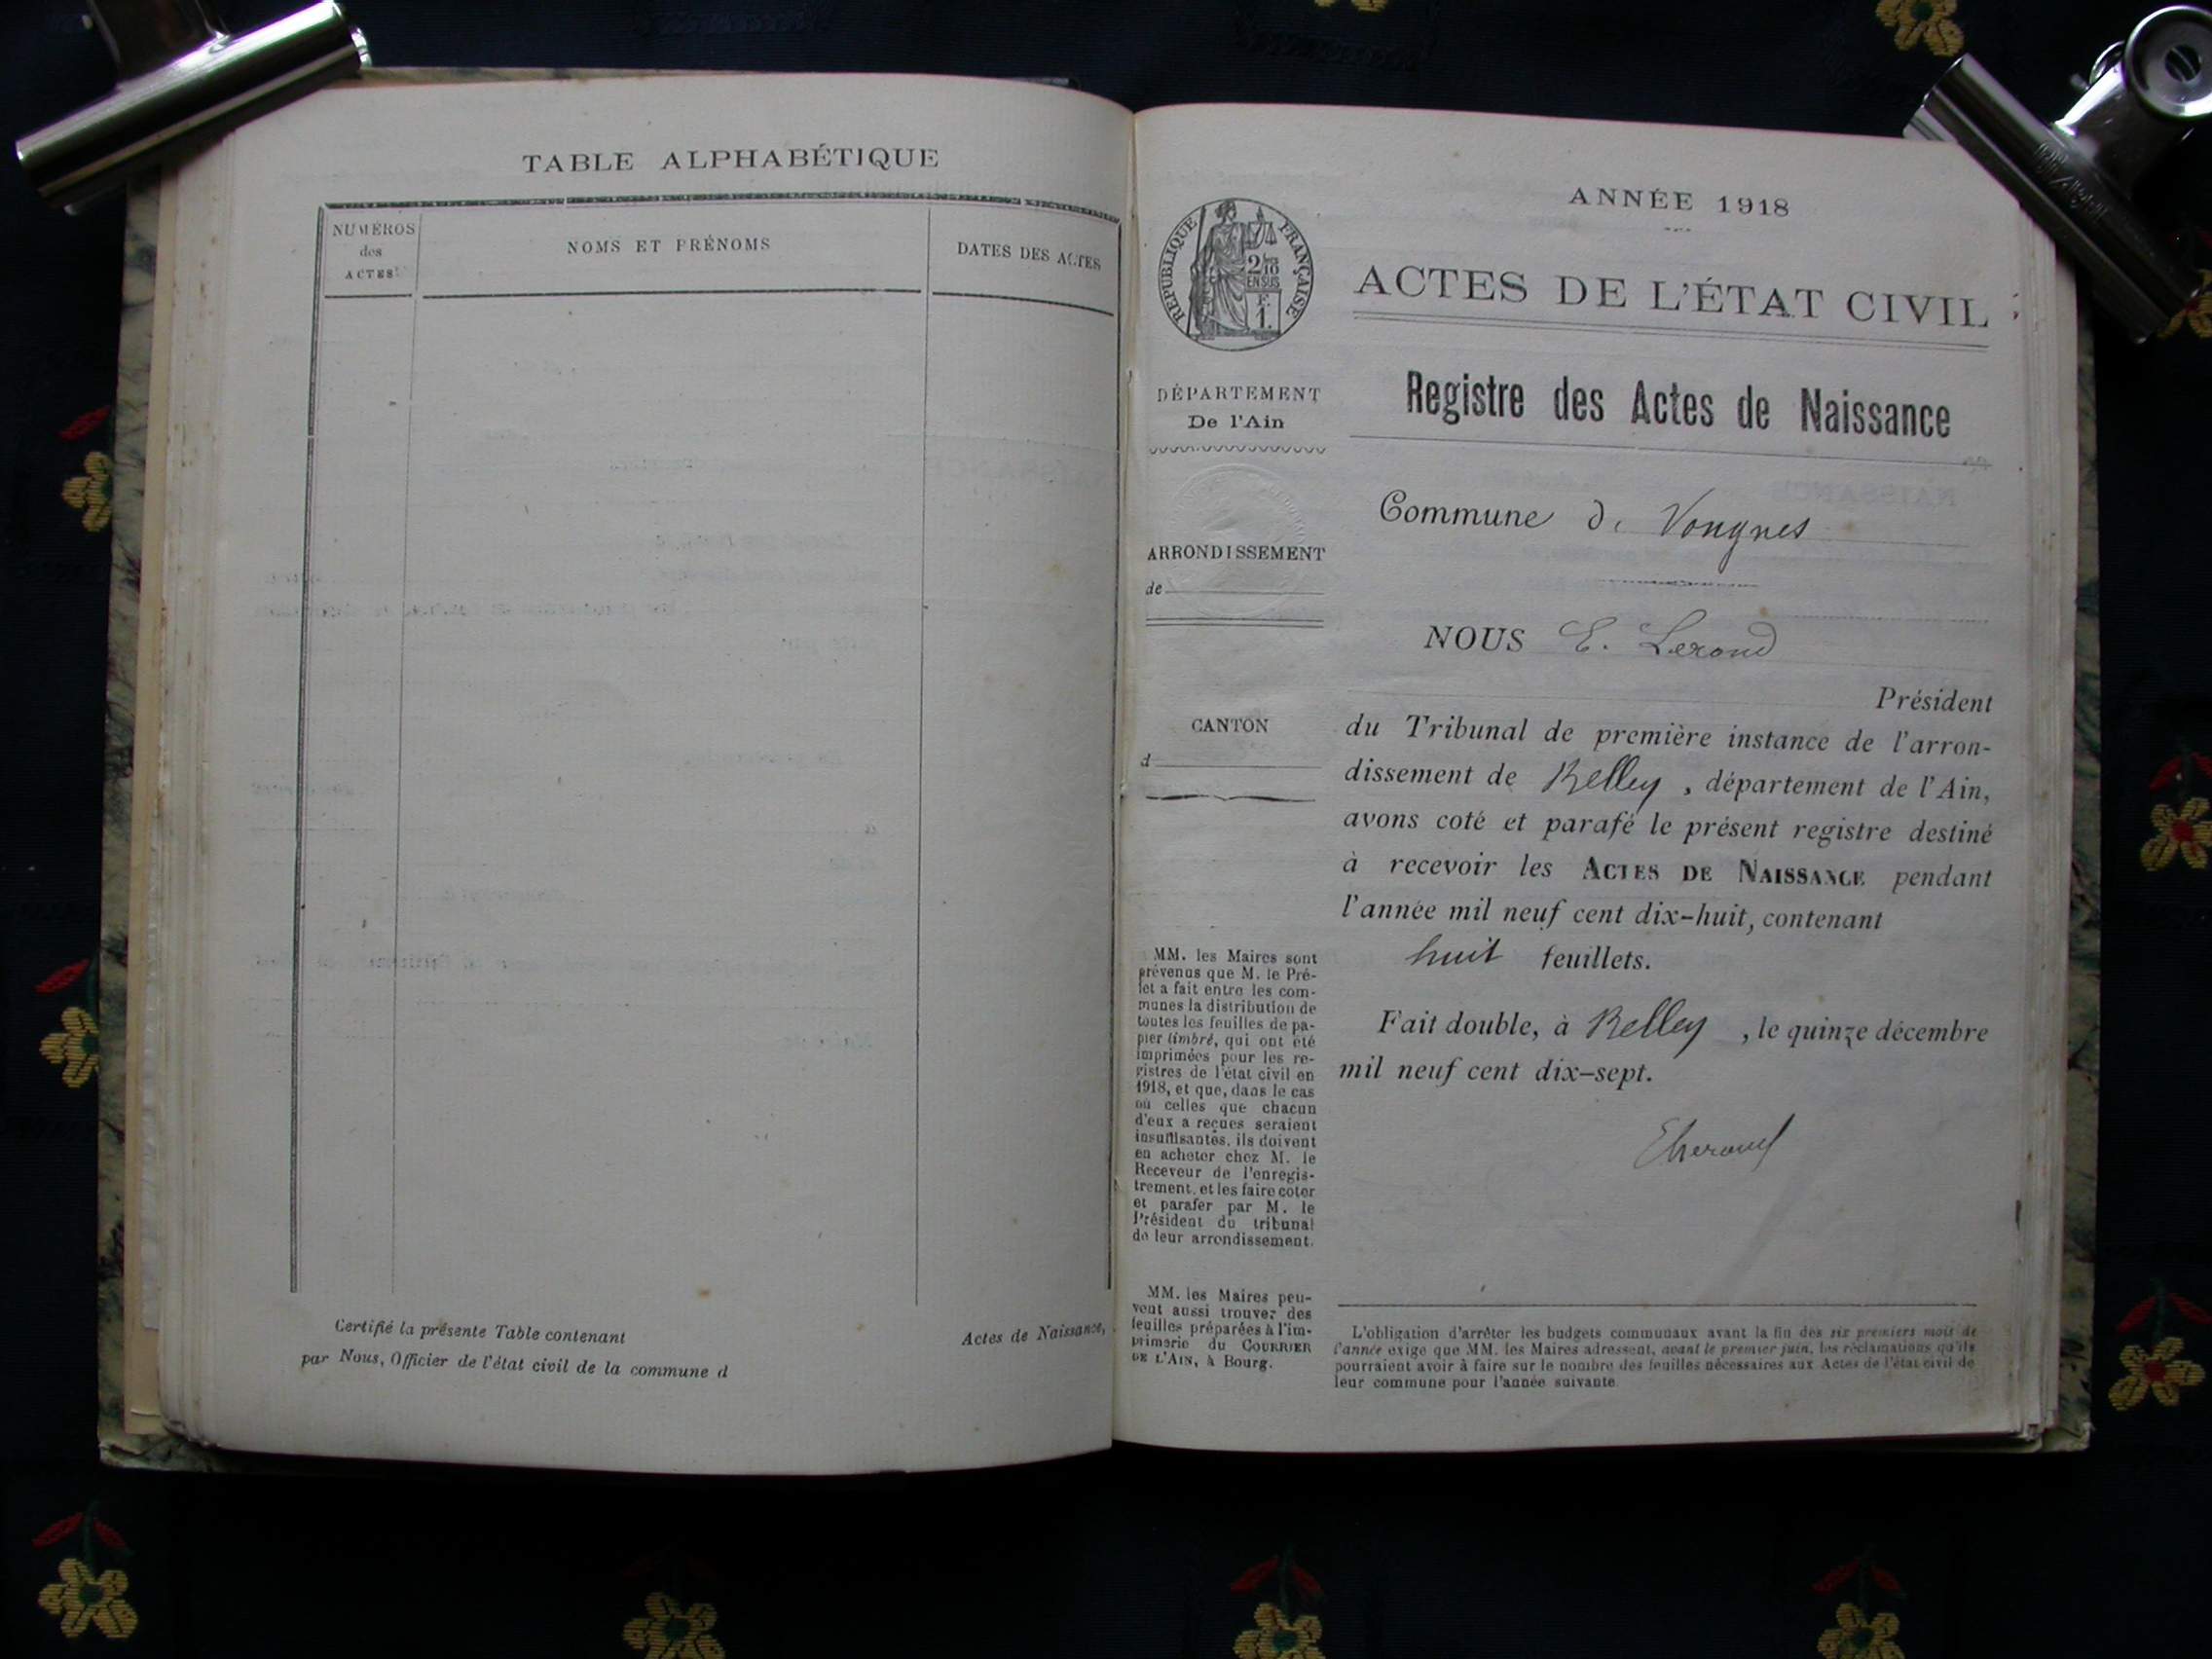 TABLE ALPHABÉTIQUE
NUMÉROS
des
ACTES
NOMS ET PRÉNOMS
DATES DES ACTES
Certifié la présente Table contenant
Actes de Naissance,
par Nous, Officier de l'état civil de la commune d
RÉPUBLIQUE FRANÇAISE
2/10
EN SUS
F.
1.
DÉPARTEMENT
De l'Ain
ARRONDISSEMENT
de
CANTON
d
MM. les Maires sont
prévenus que M. le Pré-
fet a fait entre les com-
munes la distribution de
toutes les feuilles de pa-
pier timbré, qui ont été
imprimées pour les re-
gistres de l'état civil en
1918, et que, dans le cas
où celles que chacun
d'eux a reçues seraient
insuffisantes, ils doivent
en acheter chez M. le
Receveur de l'enregis-
trement, et les faire coter
et parafer par M. le
Président du tribunal
de leur arrondissement.
MM. les Maires peu-
vent aussi trouver des
feuilles préparées à l'im-
primerie du COURRIER
DE L'AIN, à Bourg.
ANNÉE 1918
ACTES DE L'ÉTAT CIVIL
Registre des Actes de Naissance
Commune de Vongnes
NOUS E. Lerond
Président
du Tribunal de première instance de l'arron-
dissement de Belley, département de l'Ain,
avons coté et parafé le présent registre destiné
à recevoir les ACTES DE NAISSANCE pendant
l'année mil neuf cent dix-huit, contenant
huit feuillets.
Fait double, à Belley, le quinze décembre
mil neuf cent dix-sept.
L'obligation d'arrêter les budgets communaux avant la fin des six premiers mois de
l'année exige que MM. les Maires adressent, avant le premier juin, les réclamations qu'ils
pourraient avoir à faire sur le nombre des feuilles nécessaires aux Actes de l'état civil de
leur commune pour l'année suivante.